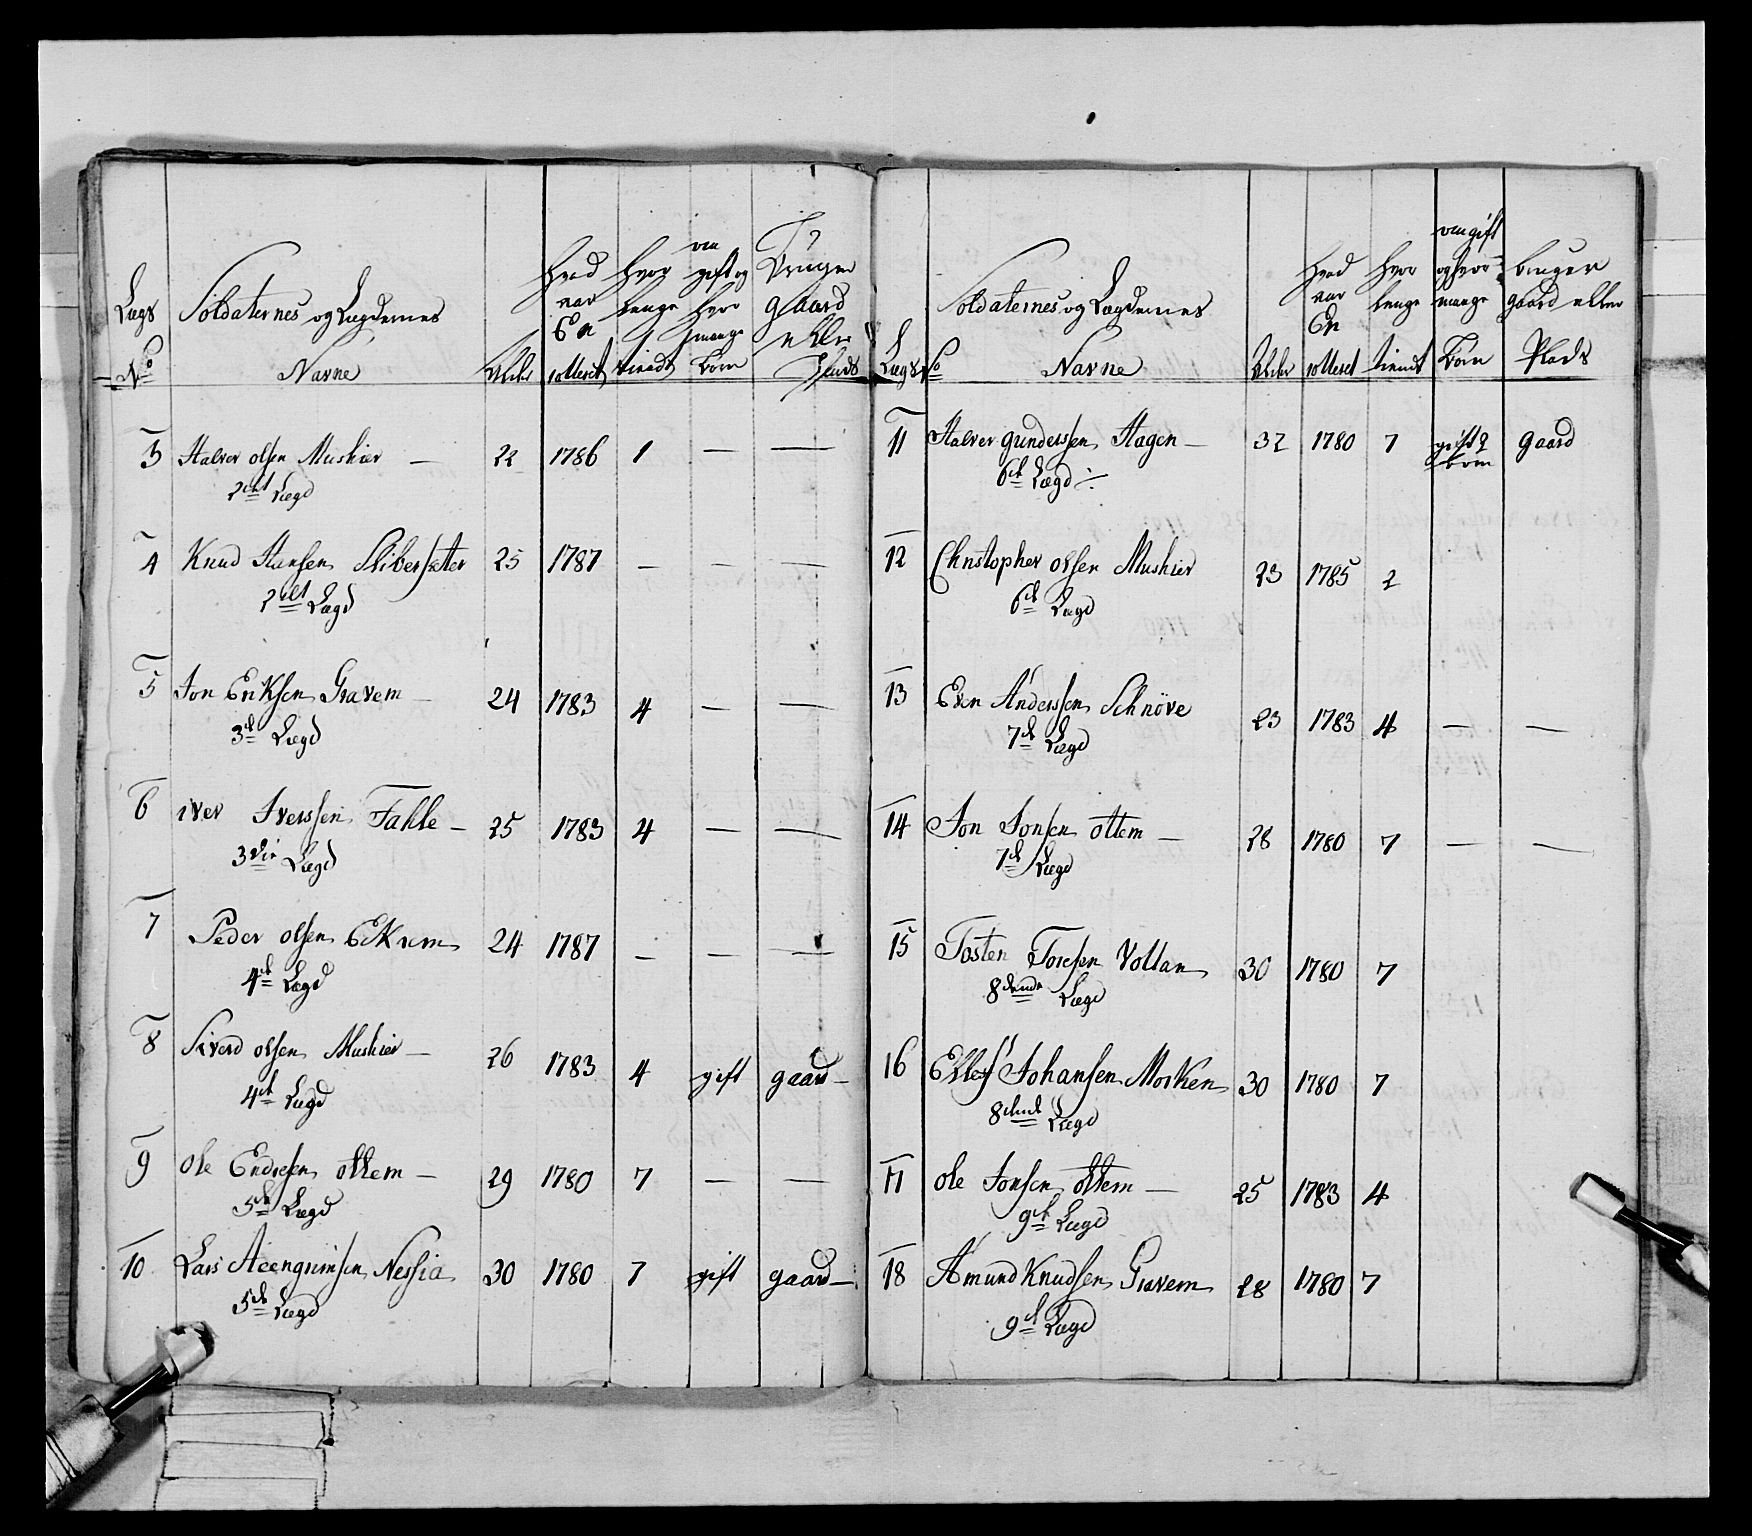 Lægs No
Soldaternes og Lægdernes Navne
Alder
hvad aar En rolleret
hvor lenge tiendt
om gift og hvor mange born
bruger gaard eller Plads
3 Halver olsen Mushier — 22 1786 1 — —
2det Lægd
4 Knud Hansen Sliberseter 25 1787 — — —
2det Lægd
5 Jon Eriksen Gravem — 24 1783 4 — —
3de Lægd
6 iver Iverssen Fahle — 25 1783 4 — —
3die Lægd
7 Peder olsen Eckrem 24 1787 — — —
4de Lægd
8 Siverd olsen Mushier — 26 1783 4 gift gaard —
4de Lægd
9 ole Endresen ottem — 29 1780 7 — —
5de Lægd
10 Lars Aeengrimsen Nessia 30 1780 7 gift gaard —
5de Lægd
Lægs No
Soldaternes og Lægdernes Navne
Alder
hvad aar En rolleret
hvor lenge tiendt
om gift og hvor mange born
bruger gaard eller Plads
11 Halver gunderssen Hagen — 32 1780 7 gift 2 born gaard
6te Lægd ÷
12 Christopher olsen Mushier 23 1785 2
6te Lægd
13 Even Anderssen Schnöve 23 1783 4 — —
7de Lægd
14 Jon Jonsen ottem — 28 1780 7 — —
7de Lægd
15 Tosten Toresen Vollan 30 1780 7
8dende Lægd
16 Ellef Johansen Morken 30 1780 7
8dende Lægd
17 ole Jonsen ottem — 25 1783 4
9de Lægd
18 Amund Knudsen Gravem 28 1780 7
9de Lægd